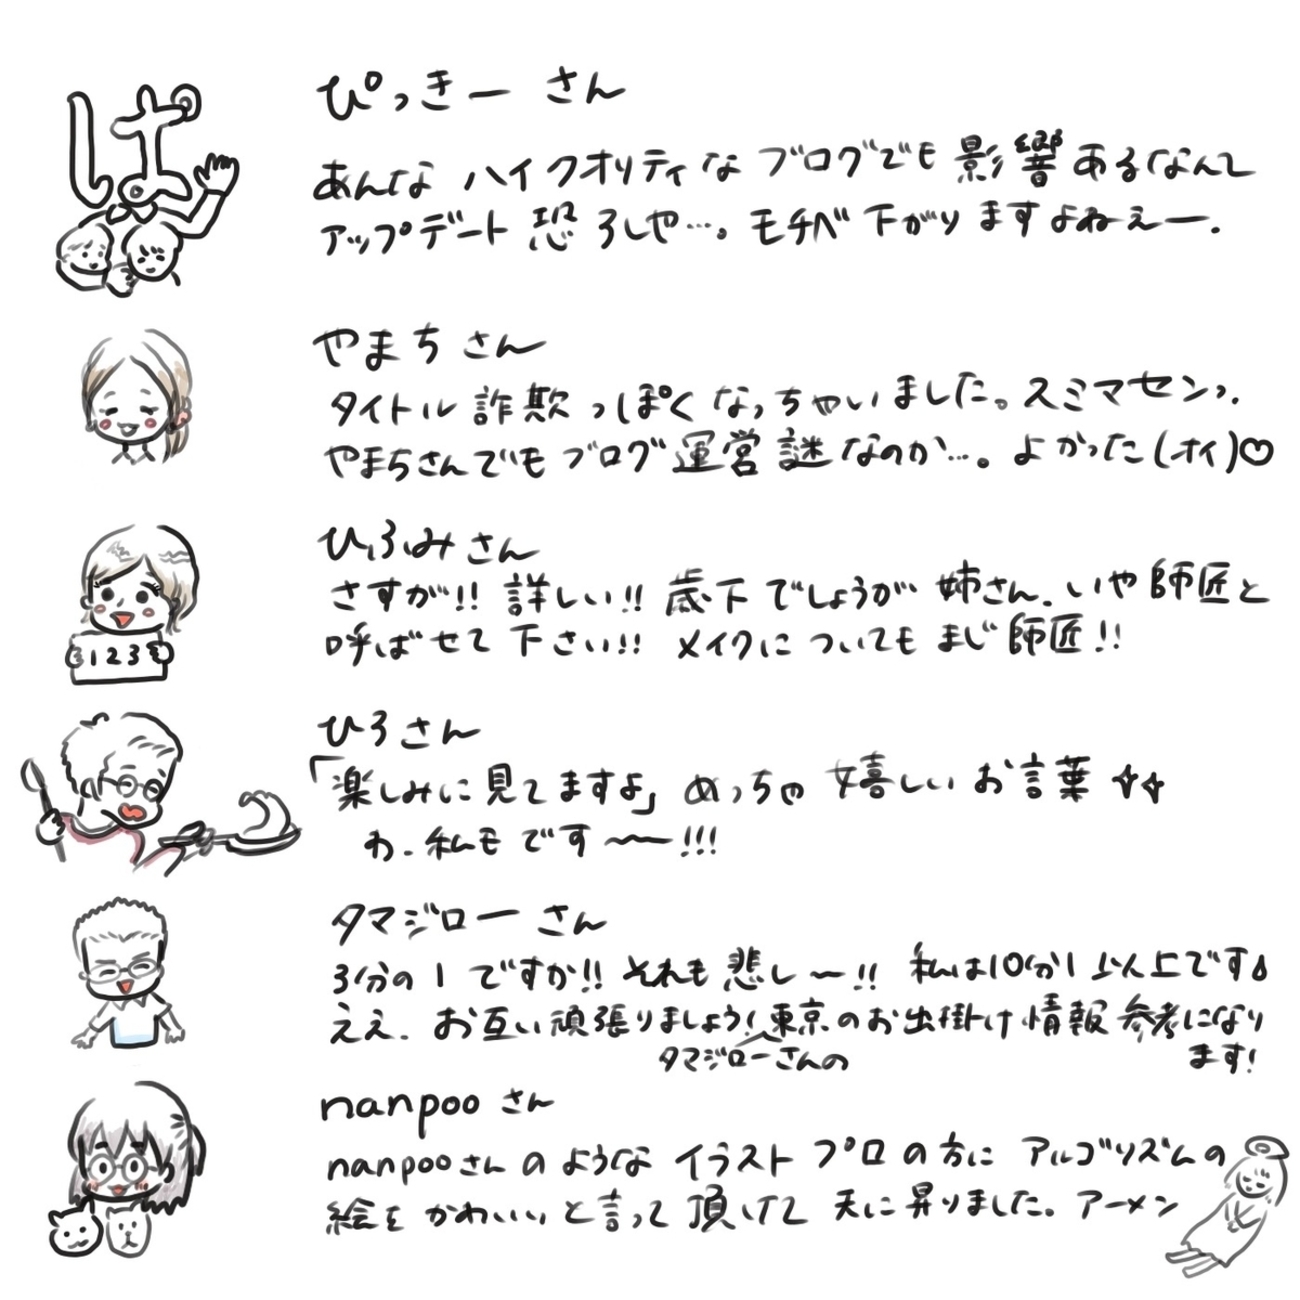 ぴっきーさん
あんなハイクオリティなブログでも影響あるなんて
アップデート恐ろしや…。モチベ下がりますよねぇー.
やまちさん
タイトル詐欺っぽくなっちゃいました。スミマセンっ.
やまちさんでもブログ運営謎なのか…。よかった(オイ)♡
ひふみさん
さすが!!詳しい!!歳下でしょうが姉さん.いや師匠と
呼ばせて下さい!!メイクについてもまじ師匠!!
123
ひろさん
「楽しみに見てますよ」めっちゃ嬉しいお言葉
わ.私もです〜!!!
タマジローさん
3分の1ですか!!それも悲し〜!!私は10分1以上です
ええ.お互い頑張りましょう!東京のお出掛け情報参考になり
タマジローさんの
ます!
nanpooさん
nanpooさんのようなイラストプロの方にアルゴリズムの
絵をかわいいと言って頂けて天に昇りました。アーメン